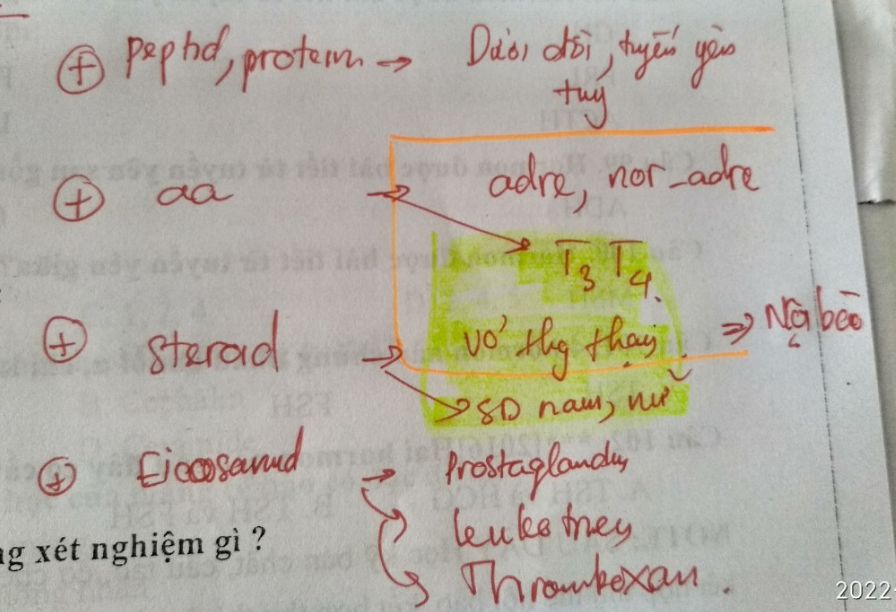 + peptid, protein → Dưới đồi, tuyến yên
tuỵ
+ aa → adre, nor-adre
T3 T4
+ Steroid → vỏ thg thận ⇒ Nội bào
→ SD nam, nữ
+ Eicosanoid → Prostaglandin
leukotrien
Thromboxan
ng xét nghiệm gì ?
2022